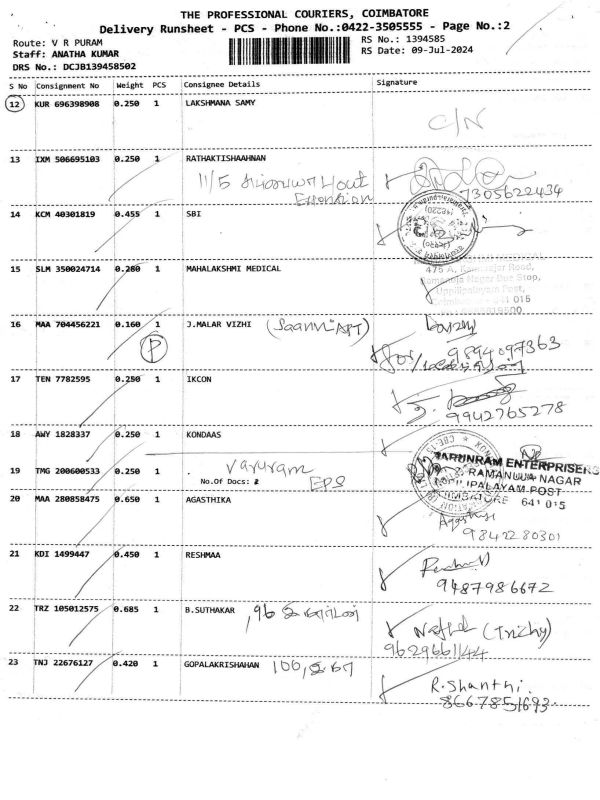 THE PROFESSIONAL COURIERS, COIMBATORE
Delivery Runsheet - PCS - Phone No.:0422-3505555 - Page No.:2
Route: V R PURAM
RS No.: 1394585
Staff: ANATHA KUMAR
RS Date: 09-Jul-2024
DRS No.: DCJB139458502
S No Consignment No Weight PCS Consignee Details Signature
12 KUR 696398908 0.250 1 LAKSHMANA SAMY
C/N
13 IXM 506695103 0.250 1 RATHAKTISHAAHNAN
11/5
7305622434
14 KCM 40301819 0.455 1 SBI
15 SLM 350024714 0.280 1 MAHALAKSHMI MEDICAL
16 MAA 704456221 0.160 1 J.MALAR VIZHI
P
9894097363
17 TEN 7782595 0.250 1 IKCON
9942765278
18 AWY 1828337 0.250 1 KONDAAS
19 TMG 200600533 0.250 1 Varuram
No.Of Docs: 2 EPS
VARUNRAM ENTERPRISERS
RAMANUJA NAGAR
COIMBATORE 641 015
20 MAA 280858475 0.650 1 AGASTHIKA
9842280301
21 KDI 1499447 0.450 1 RESHMAA
9487986672
22 TRZ 105012575 0.685 1 B.SUTHAKAR , 96
(Trichy)
9629661144
23 TNJ 22676127 0.420 1 GOPALAKRISHAHAN 106,
R. Shanthi.
8667851693